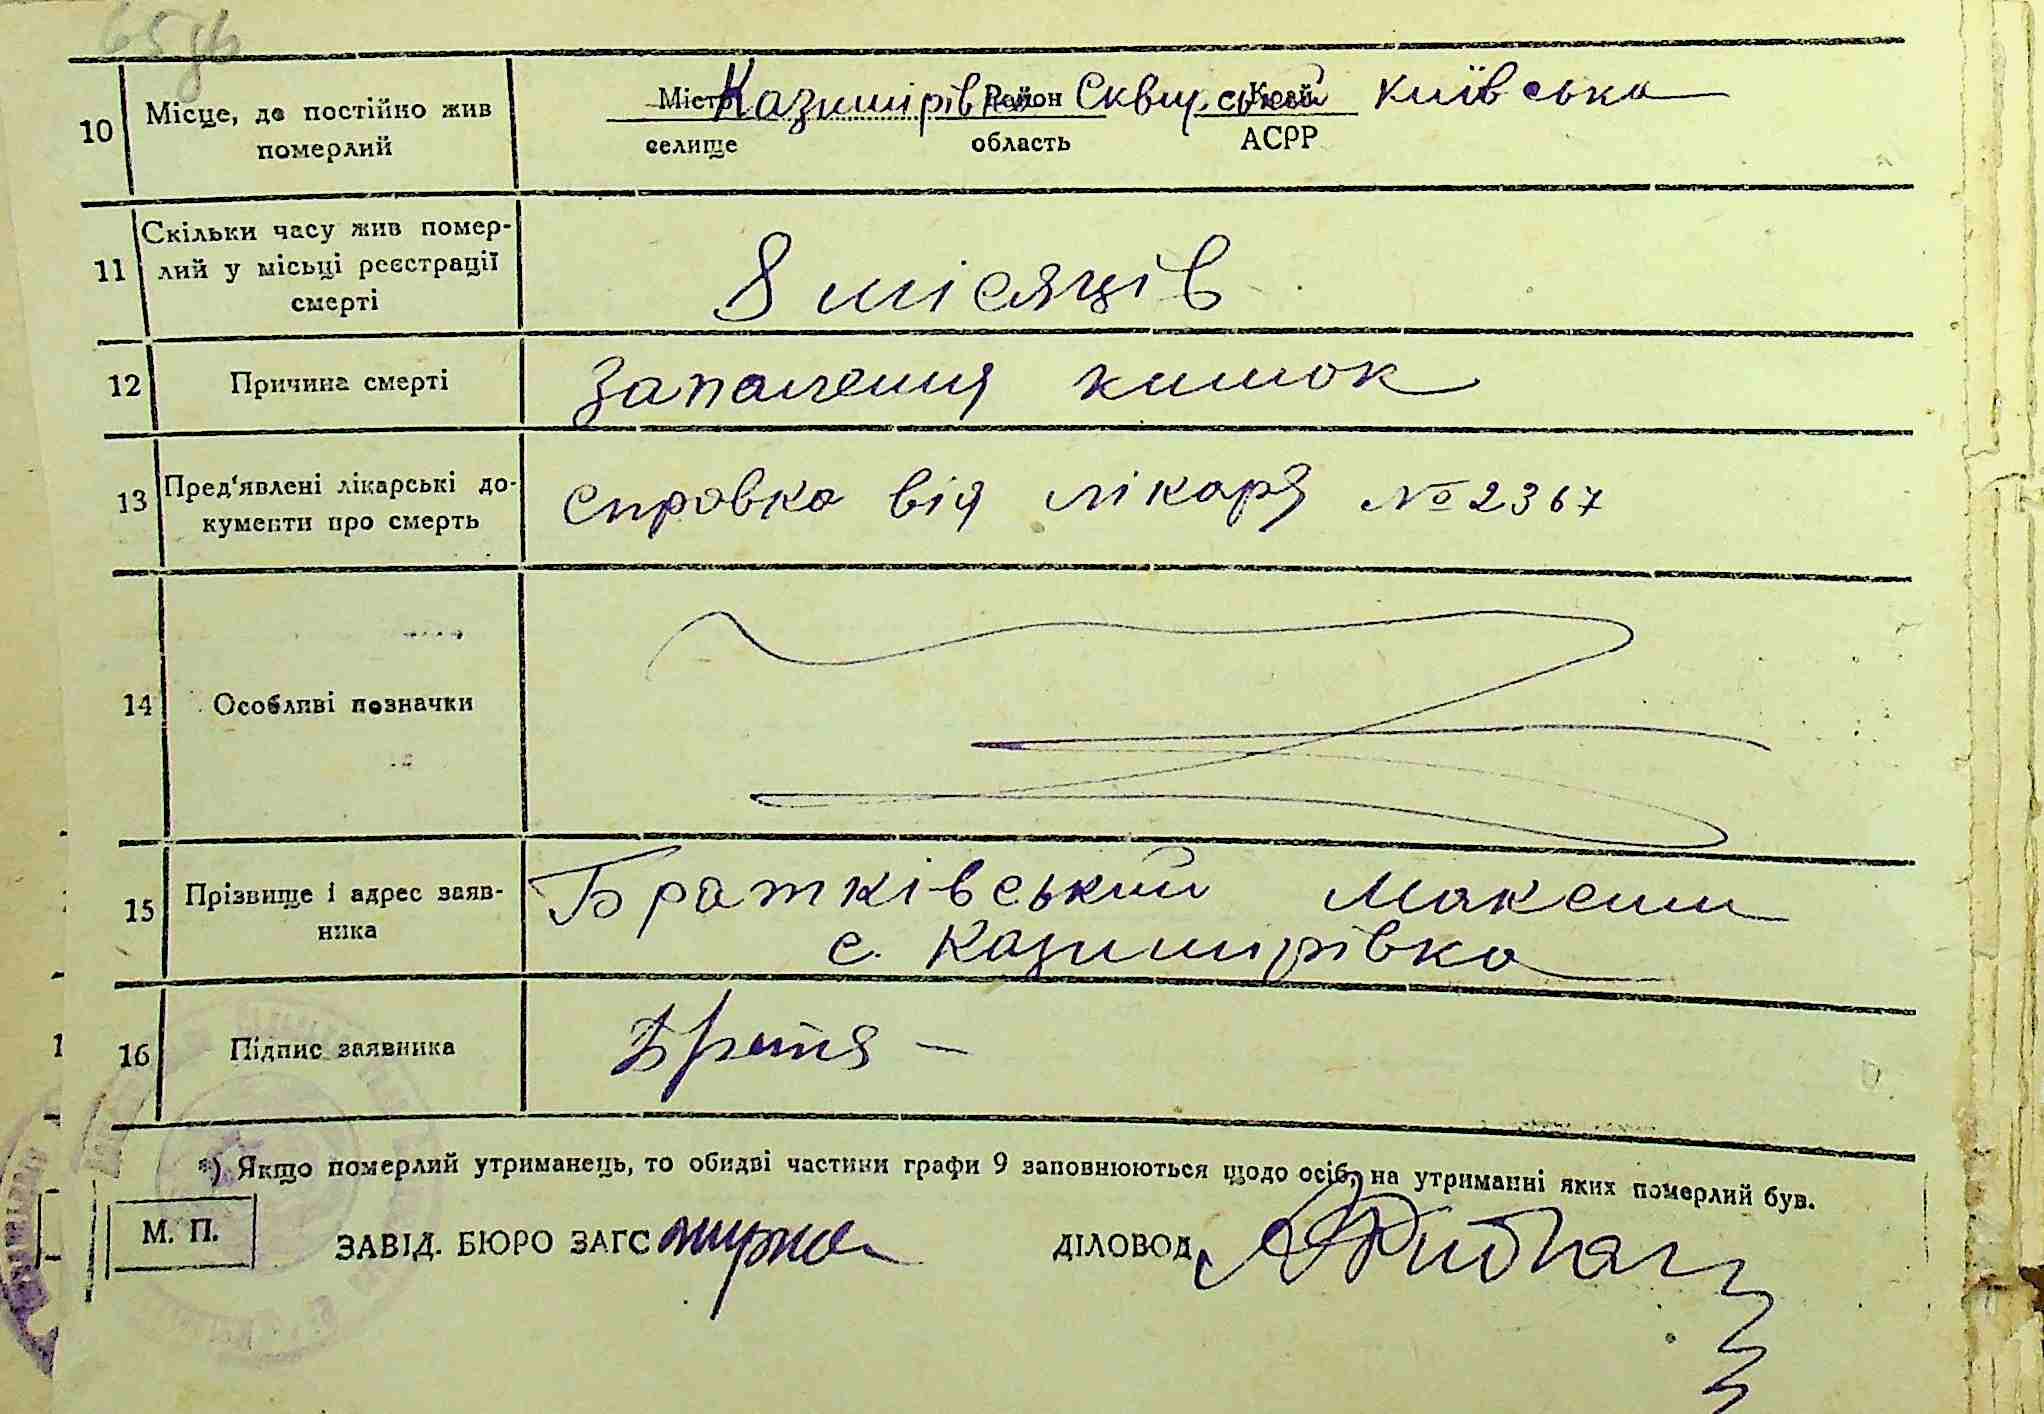 10
Місце, де постійно жив
померлий
Місто Район Край
Казимірівка Сквирський Київська
селище область АСРР
11
Скільки часу жив помер-
лий у місьці реєстрації
смерті
8 місяців
12
Причина смерті
Запалення кишок
13
Пред'явлені лікарські до-
кументи про смерть
Справка від лікаря № 2367
14
Особливі позначки
15
Прізвище і адрес заяв-
ника
Братківський Максим
с. Казимирівка
16
Підпис заявника
*) Якщо померлий утриманець, то обидві частини графи 9 заповнюються щодо осіб, на утриманні яких померлий був.
М. П.
ЗАВІД. БЮРО ЗАГС
ДІЛОВОД